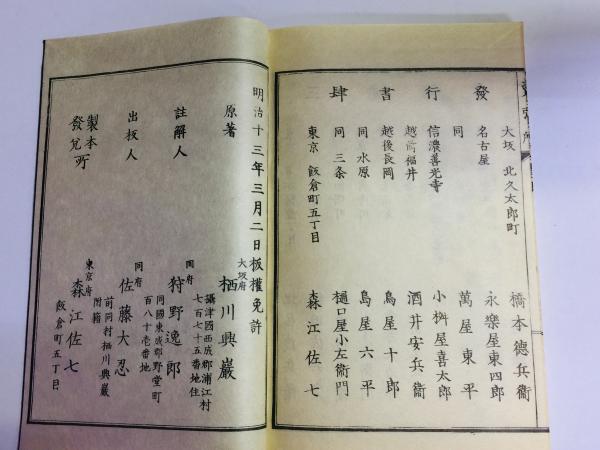 大坂 北久太郎町 橋本德兵衞
名古屋 永樂屋東四郎
發 同 萬屋東平
信濃善光寺 小桝屋喜太郎
行 越前福井 酒井安兵衞
書 越後長岡 鳥屋十郎
同 水原 島屋六平
肆 同 三条 樋口屋小左衞門
東京 飯倉町五丁目 森江佐七
明治十三年三月二日板權免許
原著 大坂府 栖川興巖
攝津國西成郡浦江村
七百七十五番地住
註解人 同府 狩野逸郎
同國東成郡野堂町
百八十壱番地
出板人 同府 佐藤大忍
前同村栖川興巖
附籍
製本 發兌所 東京府 森江佐七
飯倉町五丁目